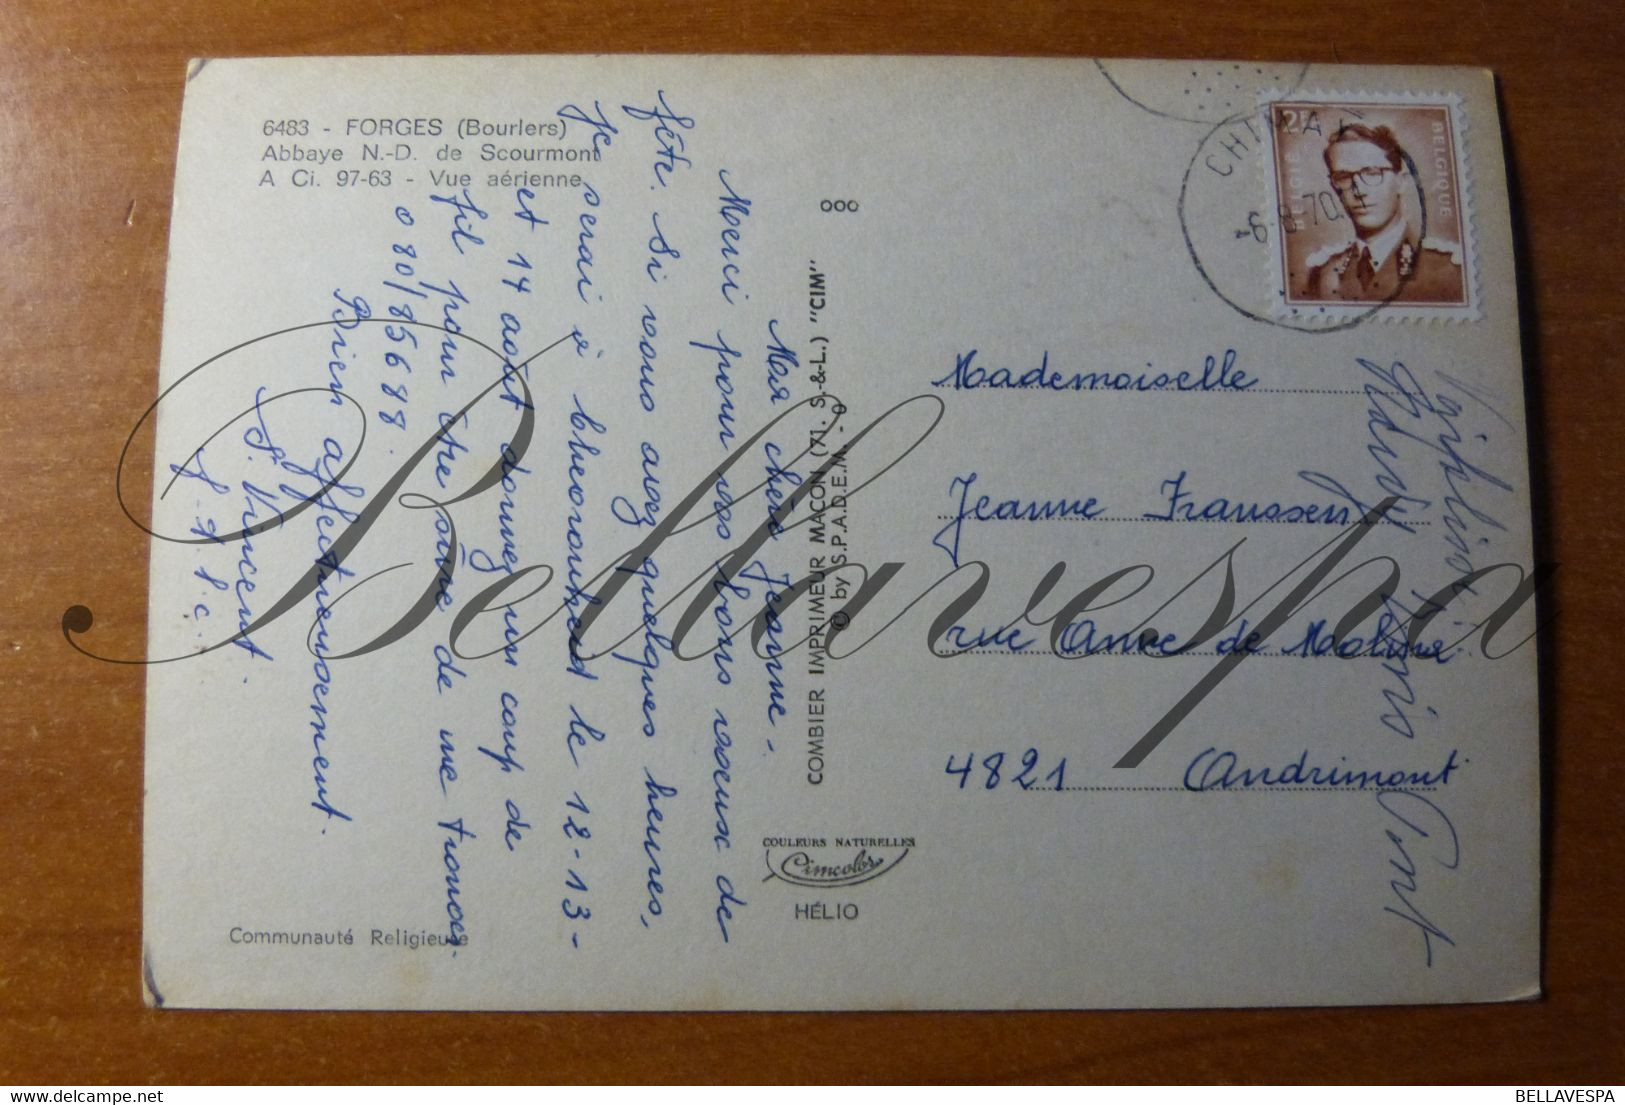 6483 - FORGES (Bourlers)
Abbaye N.-D. de Scourmont
A Ci. 97-63 - Vue aérienne
Ma chère Jeanne -
Merci pour vos bons voeux de
fête. Si vous avez quelques heures,
je serai à le 12-13-
et 14 août donnez un coup de
fil pour être sûre de me trouver
080/85688.
Bien affectueusement.
S. Vincent.
Communauté Religieuse
COMBIER IMPRIMEUR MACON (71. S.-&-L.) "CIM"
© by S.P.A.D.E.M. - 9
ooo
COULEURS NATURELLES
Cimcolor
HÉLIO
CHIMAY
-6-8-70
2F
BELGIË
BELGIQUE
Mademoiselle
Jeanne Franssen
rue Anne de Molina
4821 Andrimont
Bellavespa
BELLAVESPA